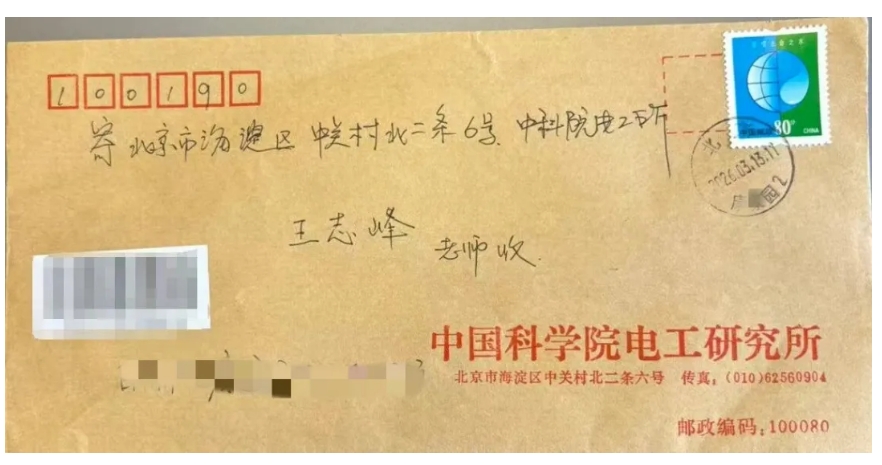 100190
寄 北京市海淀区 中关村北二条6号 中科院电工所
80分
CHINA
北
2026.03.13.11
园2
王志峰
老师收
中国科学院电工研究所
北京市海淀区中关村北二条六号 传真：(010)62560904
邮政编码：100080